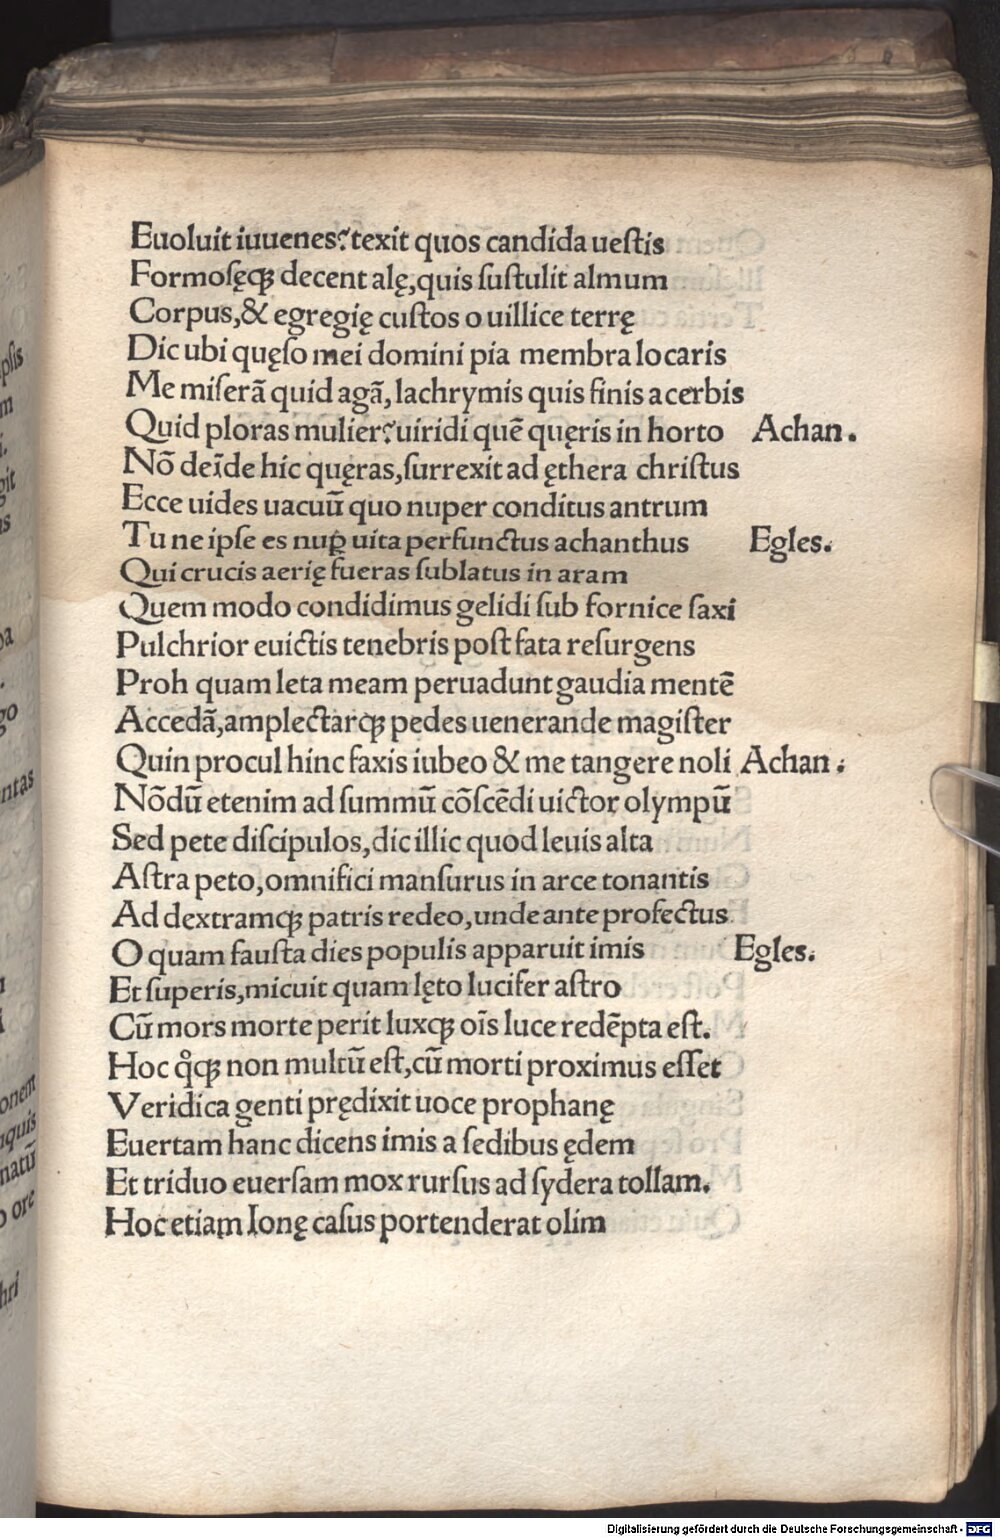 Euoluit iuuenes? texit quos candida ueſtis
Formoſęq̃ decent alę, quis ſuſtulit almum
Corpus, & egregię cuſtos o uillice terrę
Dic ubi quęſo mei domini pia membra locaris
Me miſerã quid agã, lachrymis quis finis acerbis
Quid ploras mulier? uiridi quẽ quęris in horto Achan.
Nõ deĩde hic quęras, ſurrexit ad ęthera chriſtus
Ecce uides uacuũ quo nuper conditus antrum
Tu ne ipſe es nup̱ uita perfunctus achanthus Egles.
Qui crucis aerię fueras ſublatus in aram
Quem modo condidimus gelidi ſub fornice ſaxi
Pulchrior euictis tenebris poſt fata reſurgens
Proh quam leta meam peruadunt gaudia mentẽ
Accedã, amplectarq̃ pedes uenerande magiſter
Quin procul hinc faxis iubeo & me tangere noli Achan.
Nõdũ etenim ad ſummũ cõſcẽdi uictor olympũ
Sed pete diſcipulos, dic illic quod leuis alta
Aſtra peto, omnifici manſurus in arce tonantis
Ad dextramq̃ patris redeo, unde ante profectus.
O quam fauſta dies populis apparuit imis Egles.
Et ſuperis, micuit quam lęto lucifer aſtro
Cũ mors morte perit luxq̃ oĩs luce redẽpta eſt.
Hoc q̊q̃ non multũ eſt, cũ morti proximus eſſet
Veridica genti prędixit uoce prophanę
Euertam hanc dicens imis a ſedibus ędem
Et triduo euerſam mox rurſus ad ſydera tollam.
Hoc etiam Ionę caſus portenderat olim
Digitalisierung gefördert durch die Deutsche Forschungsgemeinschaft - DFG